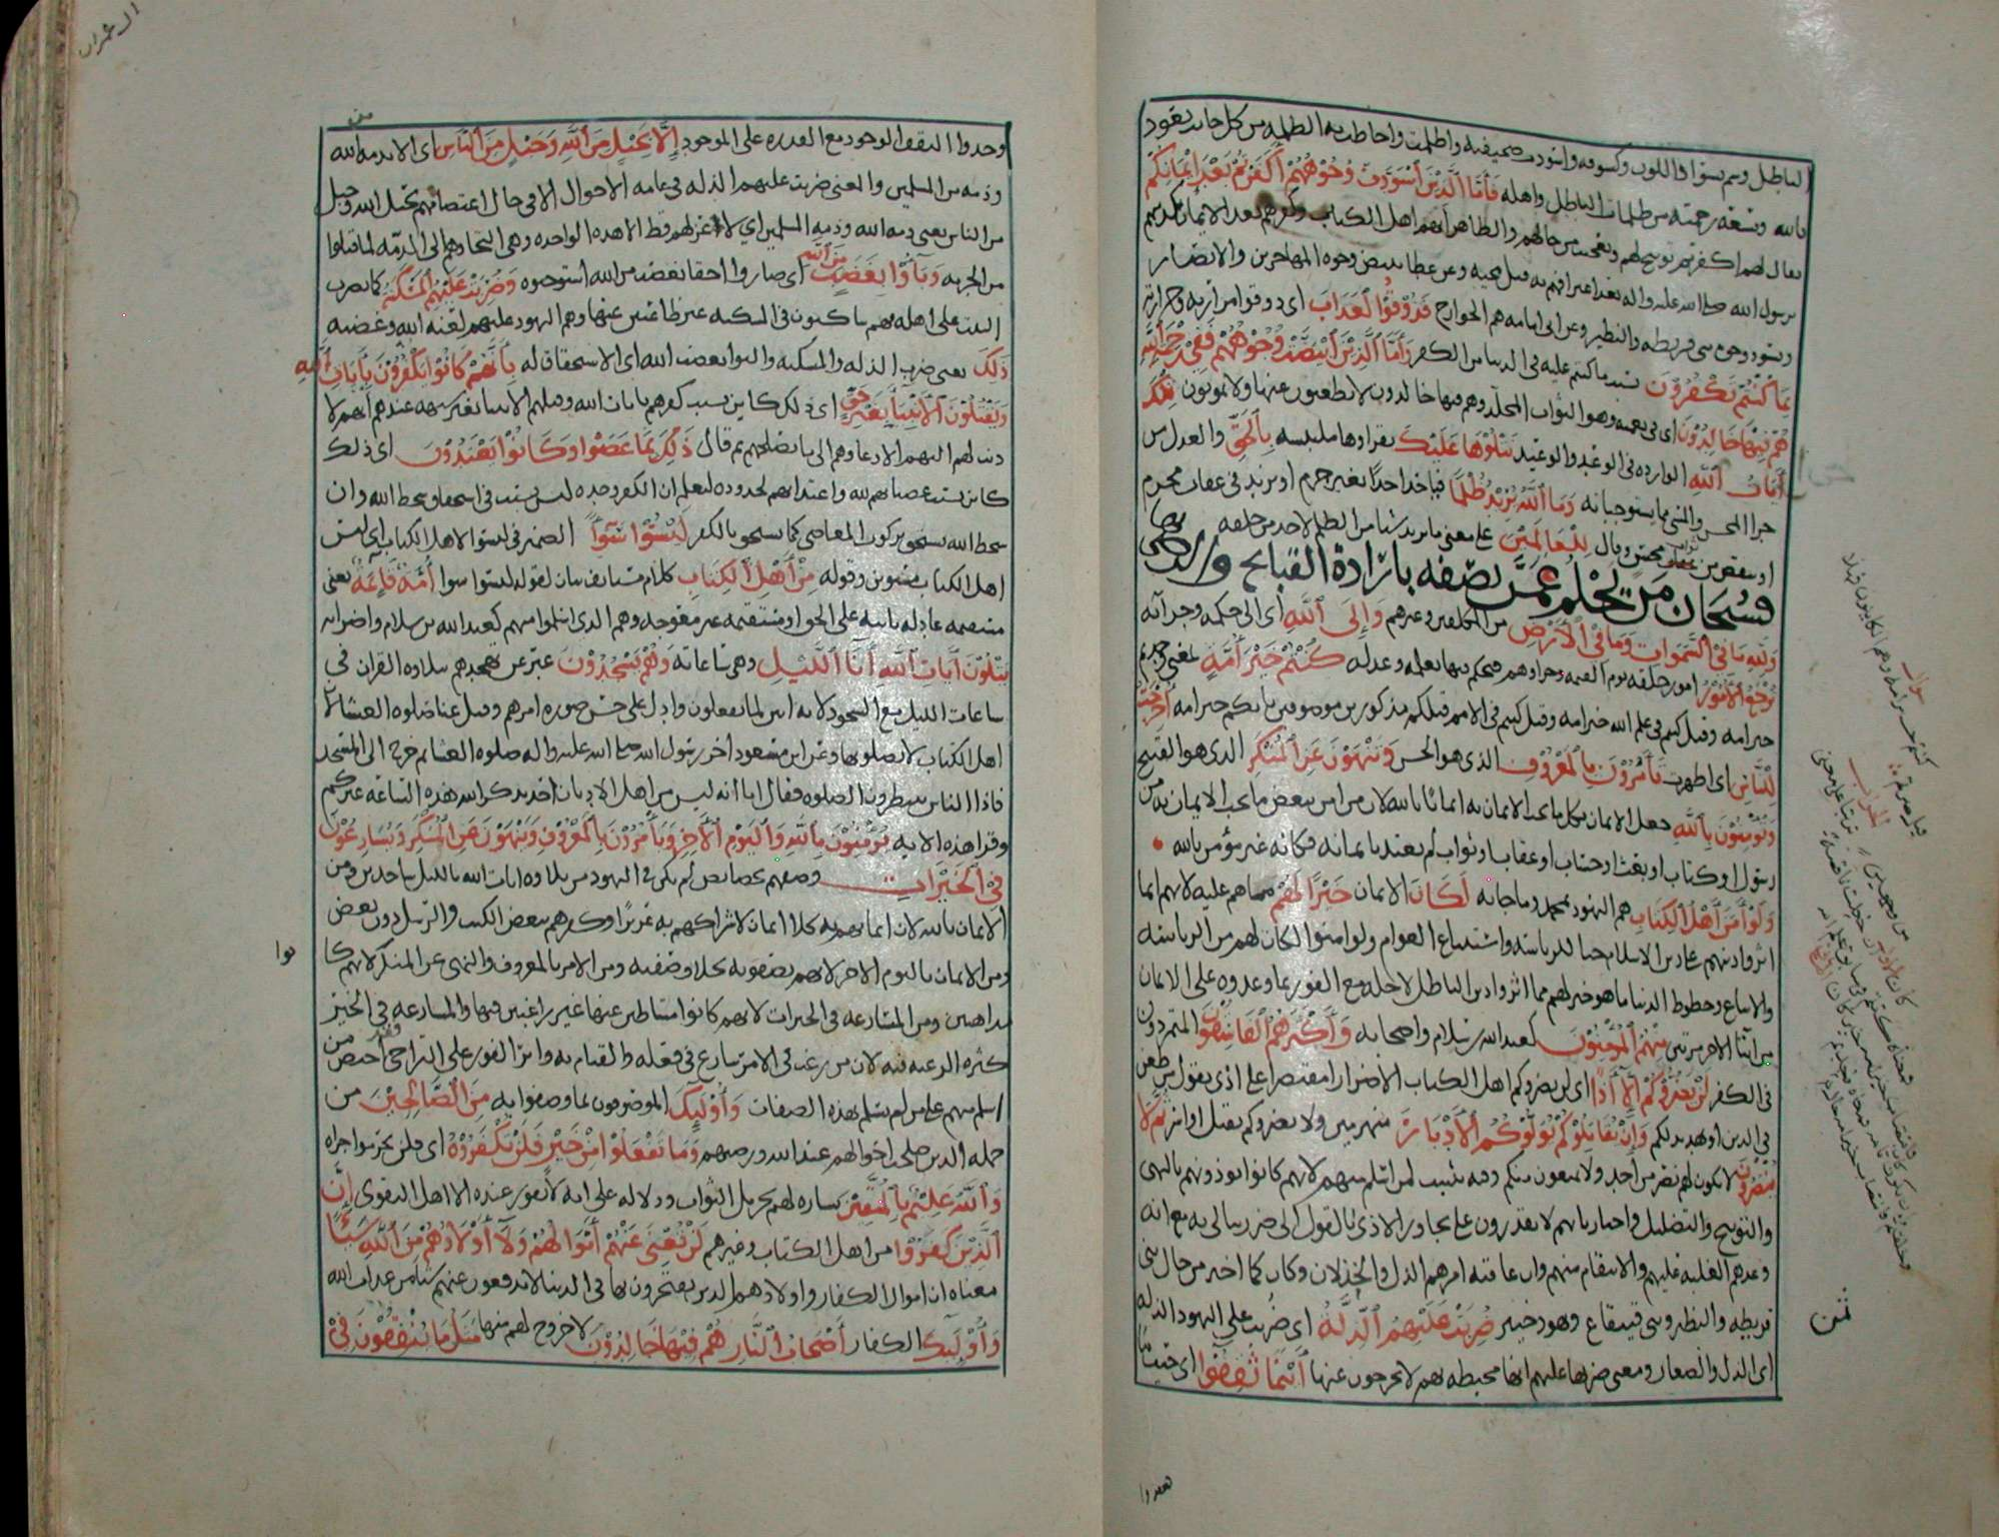 الباطل وسم بسواد اللون وكسوفه واسودت صحيفته واظلمت واحاطت به الظلمه من كل جانب نعوذ
بالله وبسعة رحمته من ظلمات الباطل واهله فَأَمَّا الَّذِينَ اسْوَدَّتْ وُجُوهُهُمْ أَكَفَرْتُمْ بَعْدَ إِيْمَانِكُمْ
يقال لهم اكفرتم توبيخ لهم وتعجيب من حالهم والظاهر انهم اهل الكتاب وكفرهم بعد الايمان تكذيبهم
برسول الله صلى الله عليه واله بعد اعترافهم به قبل مجيه وعن عطا تبيض وجوه المهاجرين والانصار
وتسود وجوه بني قريظه والنضير وعن ابي امامه هم الخوارج فَذُوْقُوا الْعَذَابَ اى ذوقوا مرارته وحرارته
بِمَا كُنْتُمْ تَكْفُرُوْنَ بسبب ما كنتم عليه في الدنيا من الكفر وَأَمَّا الَّذِيْنَ ابْيَضَّتْ وُجُوْهُهُمْ فَفِيْ رَحْمَةِ اللَّهِ
هُمْ فِيْهَا خَالِدُوْنَ اى في نعمته وهو الثواب المخلد وهم فيها خالدون لا يظعنون عنها ولا يموتون تِلْكَ
أَيَاتُ اللَّهِ الوارده في الوعد والوعيد نَتْلُوْهَا عَلَيْكَ نقراوها ملتبسه بِالْحَقِّ والعدل من
جزا المحسن والمسي بما يستوجبانه وَمَا اللَّهُ يُرِيْدُ ظُلْمًا فياخذ احدًا بغير جرم او يزيد في عقاب مجرم
او ينقص من ثواب محسن وقال لِلْعَالَمِيْنَ على معنى ما يريد شيا من الظلم لاحد من خلقه
فسبحان من يحلم عمن يصفه بارادة القبايح والرضى بها
وَلِلَّهِ مَا فِيْ السَّمَوَاتِ وَمَا فِيْ الْأَرْضِ من المكلفين وغيرهم وَإِلَى اللَّهِ اى الى حكمه وجزآئه
تُرْجَعُ الْأُمُوْرُ امور خلقه يوم القيمه وجزاوهم فيحكم فيها بعلمه وعدله كُنْتُمْ خَيْرَ أُمَّةٍ بمعنى وجدتم
خير امه وقيل كنتم في علم الله خير امه وقيل كنتم في الامم قبلكم مذكورين موصوفين بانكم خير امه أُخْرِجَتْ
لِلنَّاسِ اى اظهرت تَأْمُرُوْنَ بِالْمَعْرُوْفِ الذي هو الحسن وَتَنْهَوْنَ عَنِ الْمُنْكَرِ الذى هو القبيح
وَتُؤْمِنُوْنَ بِاللَّهِ جعل الايمان بكل ما يجب الايمان به ايمانًا بالله لان من امن ببعض ما يجب الايمان به من
رسول او كتاب او بعث او حساب او عقاب او ثواب لم يعتد بايمانه فكانه غير مؤمن بالله
وَلَوْ أَمَنَ أَهْلُ الْكِتَابِ هم اليهود بمحمد وما جا به لَكَانَ الايمان خَيْرًا لَهُمْ مما هم عليه لانهم انما
اثروا دينهم على دين الاسلام حبا للرياسه واستتباع العوام ولو امنوا لكان لهم من الرياسه
والاتباع وحظوظ الدنيا ما هو خير لهم مما اثروا دين الباطل لاجله مع الفوز بما وعدوه على الايمان
من ايتا الاجر مرتين مِنْهُمُ الْمُؤْمِنُوْنَ كعبد الله بن سلام واصحابه وَأَكْثَرُهُمُ الْفَاسِقُوْنَ المتمردون
في الكفر لَنْ يَضُرُّوْكُمْ إِلَّآ أَذًى اى لن يضروكم اهل الكتاب الا ضرارا مقتصرا على اذى بقول من طعن
في الدين او تهديد لكم وَإِنْ يُقَاتِلُوْكُمْ يُوَلُّوْكُمُ الْأَدْبَارَ منهزمين ولا يضروكم بقتل او اسر ثُمَّ لَا
يُنْصَرُوْنَ لا يكون لهم نصر من احد ولا يمنعون منكم وفيه تثبيت لمن اسلم منهم لانهم كانوا يوذونهم بالتهى
والتوبيخ والتضليل واخبار بانهم لا يقدرون على تجاوز الاذى بالقول الى ضرر يبالى به مع انه
وعدهم الغلبه عليهم والانتقام منهم وان عاقبه امرهم الذل والخذلان وكان كما اخبر من حال بنى
قريظه والنظير وبنى قينقاع ويهود خيبر ضُرِبَتْ عَلَيْهِمُ الذِّلَّةُ اى ضربت على اليهود الذله
اى الذل والصغار ومعنى ضربها عليهم انها محيطه بهم لا يخرجون عنها أَيْنَمَا ثُقِفُوْا اى حيث ما
ثمن
ال عمران
وجدوا الثقف الوجود مع القدره على الموجود إِلَّا بِحَبْلٍ مِنَ اللَّهِ وَحَبْلٍ مِنَ النَّاسِ اى الا بذمه الله
وذمه من المسلمين والمعنى ضربت عليهم الذله في عامه الاحوال الا في حال اعتصامهم بحبل الله وحبل
من الناس يعنى ذمه الله وذمه المسلمين اي لا عز لهم قط الا هذه الواحده وهى التجاوهم الى الذمه لما قبلوا
من الجزيه وَبَآؤُا بِغَضَبٍ مِنَ اللَّهِ اى صاروا احقا بغضب من الله استوجبوه وَضُرِبَتْ عَلَيْهِمُ الْمَسْكَنَةُ كما يضرب
البيت على اهله فهم ساكنون في المسكنه غير ظاعنين عنها وهم اليهود عليهم لعنه الله وغضبه
ذَلِكَ يعنى ضرب الذله والمسكنه والبوا بغضب الله اى الاستحقاق له بِأَنَّهُمْ كَانُوْا يَكْفُرُوْنَ بِأَيَاتِ اللَّهِ
وَيَقْتُلُوْنَ الْأَنْبِيَآءَ بِغَيْرِ حَقٍّ اى ذلك كاين بسبب كفرهم بايات الله وقتلهم الانبيا بغير شبهه عندهم انهم لا
ذنب لهم اليهم الا دعاوهم الى ما يصلحهم ثم قال ذَلِكَ بِمَا عَصَوْا وَكَانُوْا يَعْتَدُوْنَ اى ذلك
كاين بسبب عصيانهم لله واعتدائهم لحدوده ليعلم ان الكفر وحده ليس بسبب في استحقاق سخط الله وان
سخط الله يستحق بركوب المعاصى كما يستحق بالكفر لَيْسُوْا سَوَآءً الضمير في ليسوا لاهل الكتاب اى ليس
اهل الكتاب مستوين وقوله مِنْ أَهْلِ الْكِتَابِ كلام مستانف بيان لقوله ليسوا سوا أُمَّةٌ قَائِمَةٌ يعنى
مستقيمه عادله ثابته على الحق او مستقيمه غير معوجه وهم الذى اسلموا منهم كعبد الله بن سلام واضرابه
يَتْلُوْنَ أَيَاتِ اللَّهِ أَنَآءَ اللَّيْلِ وهى ساعاته وَهُمْ يَسْجُدُوْنَ عبر عن تهجدهم بتلاوه القران في
ساعات الليل مع السجود لانه ابين لما يفعلون وادل على حسن صوره امرهم وقيل عنا صلوه العشا لان
اهل الكتاب لا يصلونها وعن ابن مسعود اخر رسول الله صلى الله عليه واله صلوه العشا ثم خرج الى المسجد
فاذا الناس ينتظرون الصلوه فقال اما انه ليس من اهل الاديان احد يذكر الله هذه الساعه غيركم
وقرا هذه الايه يُؤْمِنُوْنَ بِاللَّهِ وَالْيَوْمِ الْأَخِرِ وَيَأْمُرُوْنَ بِالْمَعْرُوْفِ وَيَنْهَوْنَ عَنِ الْمُنْكَرِ وَيُسَارِعُوْنَ
فِيْ الْخَيْرَاتِ وصفهم بخصائص لم تكن في اليهود من تلاوه ايات الله بالليل ساجدين ومن
الايمان بالله لان ايمانهم به كلا ايمان لاشراكهم به عزيرًا وكفرهم ببعض الكتب والرسل دون بعض
ومن الايمان باليوم الاخر لانهم يصفونه بخلاف صفته ومن الامر بالمعروف والنهى عن المنكر لانهم كانوا
مداهنين ومن المسارعه في الخيرات لانهم كانوا متباطين عنها غير راغبين فيها والمسارعه في الخير
كثره الرغبه فيه لان من رغب في الامر سارع في فعله والقيام به واثر الفور على التراخى
اسلم منهم على من لم يسلم بهذه الصفات وَأُوْلَئِكَ الموصوفون بما وصفوا به مِنَ الصَّالِحِيْنَ من
جمله الذين صلحت احوالهم عند الله ورضيهم وَمَا تَفْعَلُوْا مِنْ خَيْرٍ فَلَنْ تُكْفَرُوْهُ اى فلن تحرموا جزاه
وَاللَّهُ عَلِيْمٌ بِالْمُتَّقِيْنَ بشاره لهم بجزيل الثواب ودلاله على انه لا يفوز عنده الا اهل التقوى إِنَّ
الَّذِيْنَ كَفَرُوْا من اهل الكتاب وغيرهم لَنْ تُغْنِيَ عَنْهُمْ أَمْوَالُهُمْ وَلَآ أَوْلَادُهُمْ مِنَ اللَّهِ شَيْئًا
معناه ان اموال الكفار واولادهم الذين يفتخرون بها في الدنيا لا يدفعون عنهم شيا من عذاب الله
وَأُوْلَئِكَ الكفار أَصْحَابُ النَّارِ هُمْ فِيْهَا خَالِدُوْنَ لا خروج لهم منها مَثَلُ مَا يُنْفِقُوْنَ فِيْ